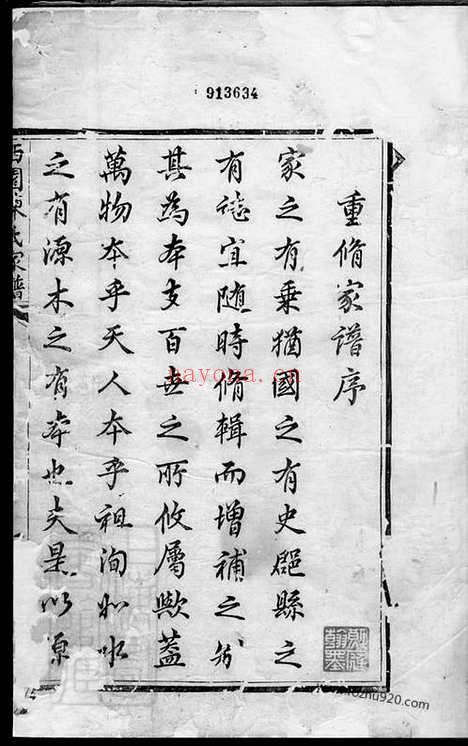 913634
重脩家譜序
家之有乗猶國之有史郡縣之
有誌宜随時脩輯而增補之矧
其為本支百世之所攸屬歟蓋
萬物本乎天人本乎祖洵如水
之有源木之有本也夫是以源
陳氏家譜
nayona.cn